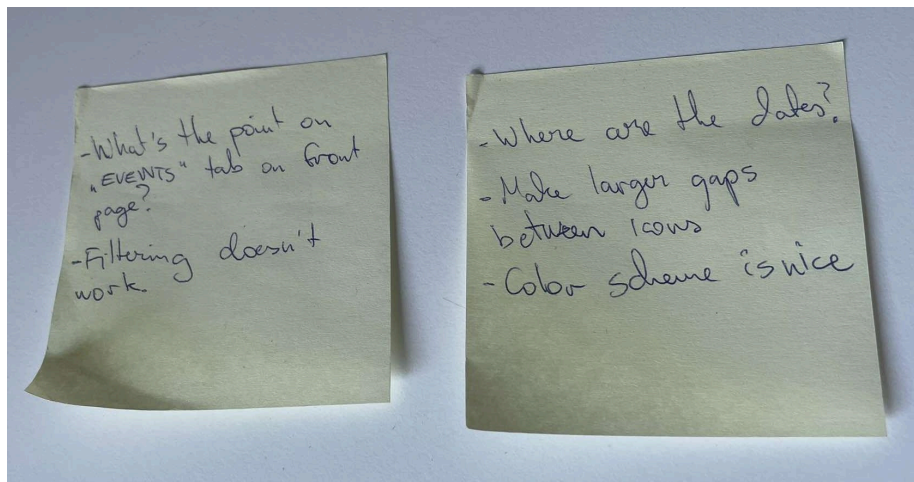 -What's the point on
„EVENTS" tab on front
page?
-Filtering doesn't
work.
-Where are the dates?
-Make larger gaps
between icons
-Color scheme is nice